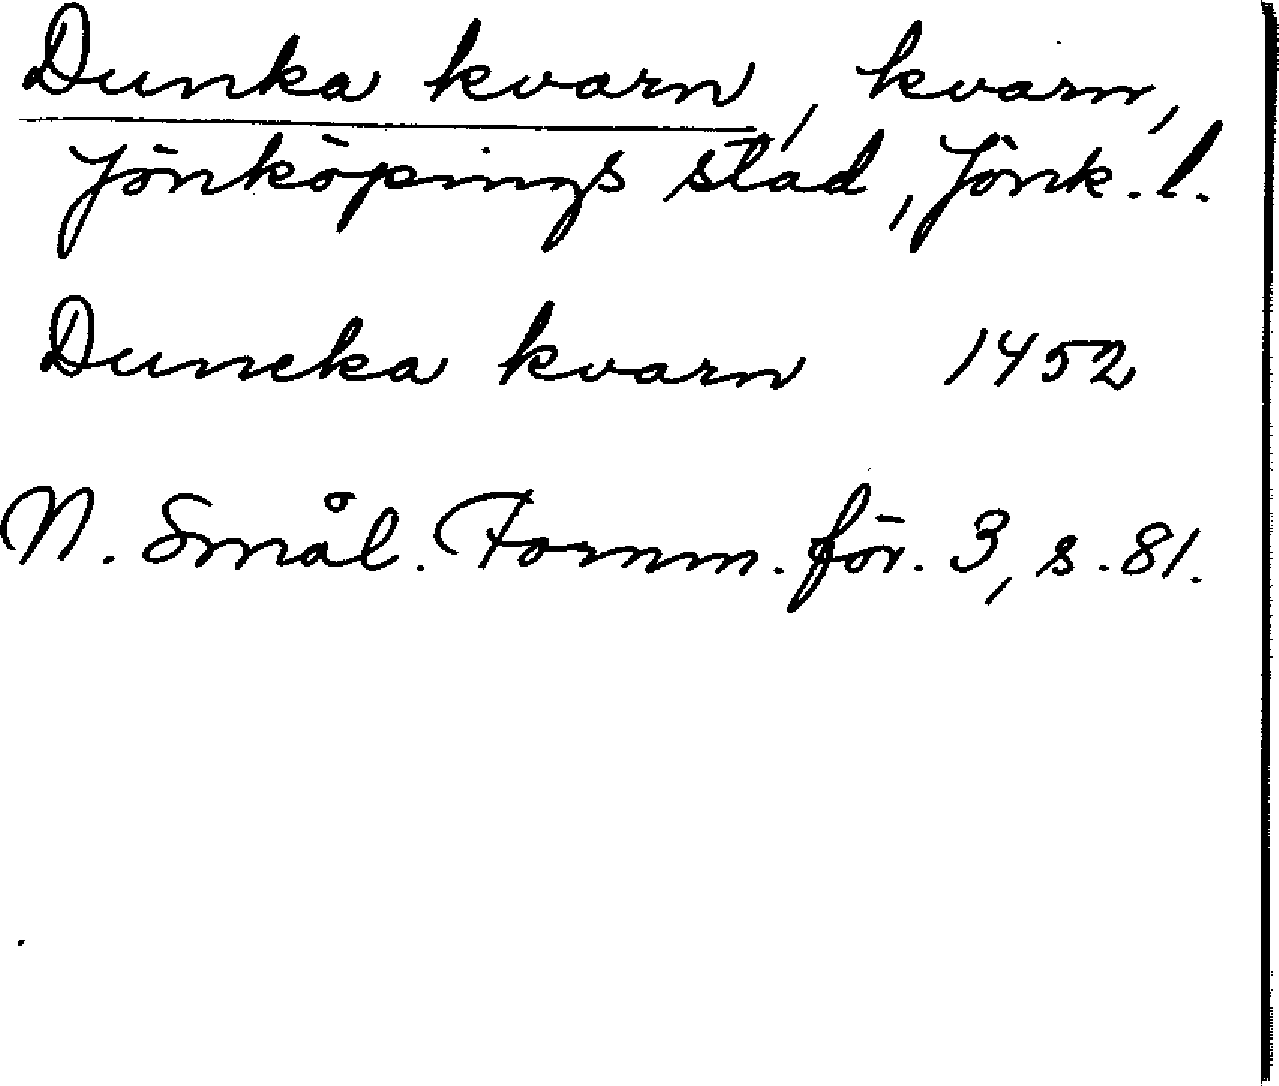 Dunka kvarn, kvarn,
Jönköpings stad, Jönk. l.
Duncka kvarn 1452
N. Smål. Fornm. för. 3, s. 81.